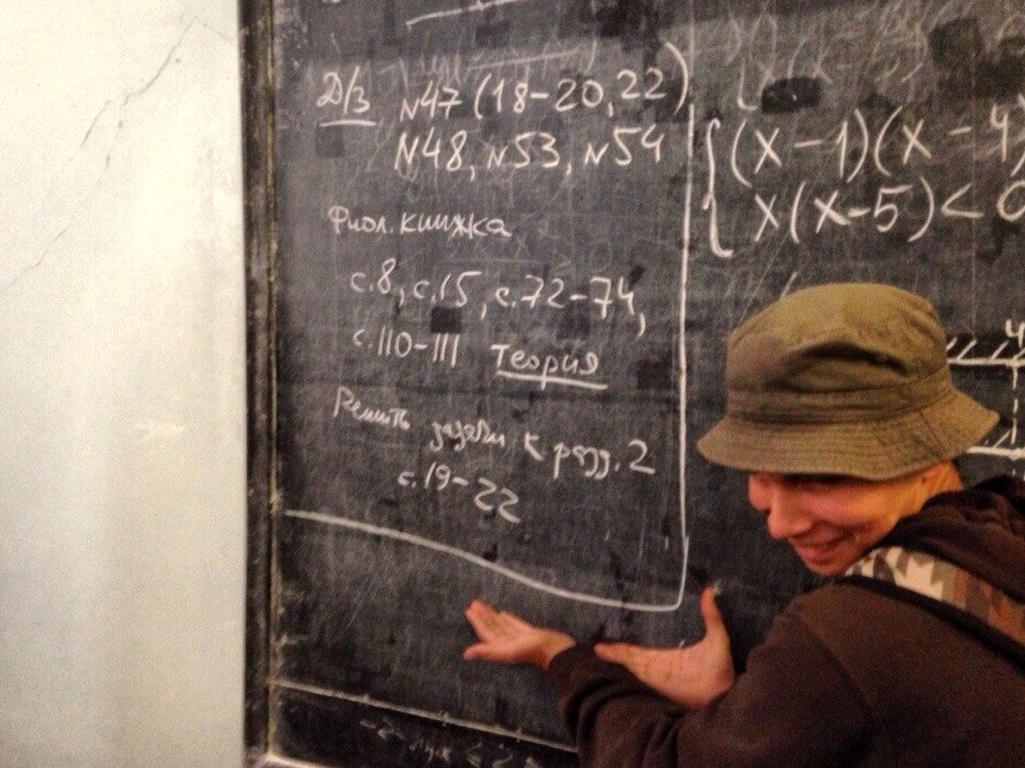 Д/з N47 (18-20, 22)
N48, N53, N54
Фиол. книжка
с.8, с.15, с.72-74,
с.110-111 Теория
Решить задачи к разд. 2
с.19-22
(x-1)(x-4)
x(x-5)<0
4